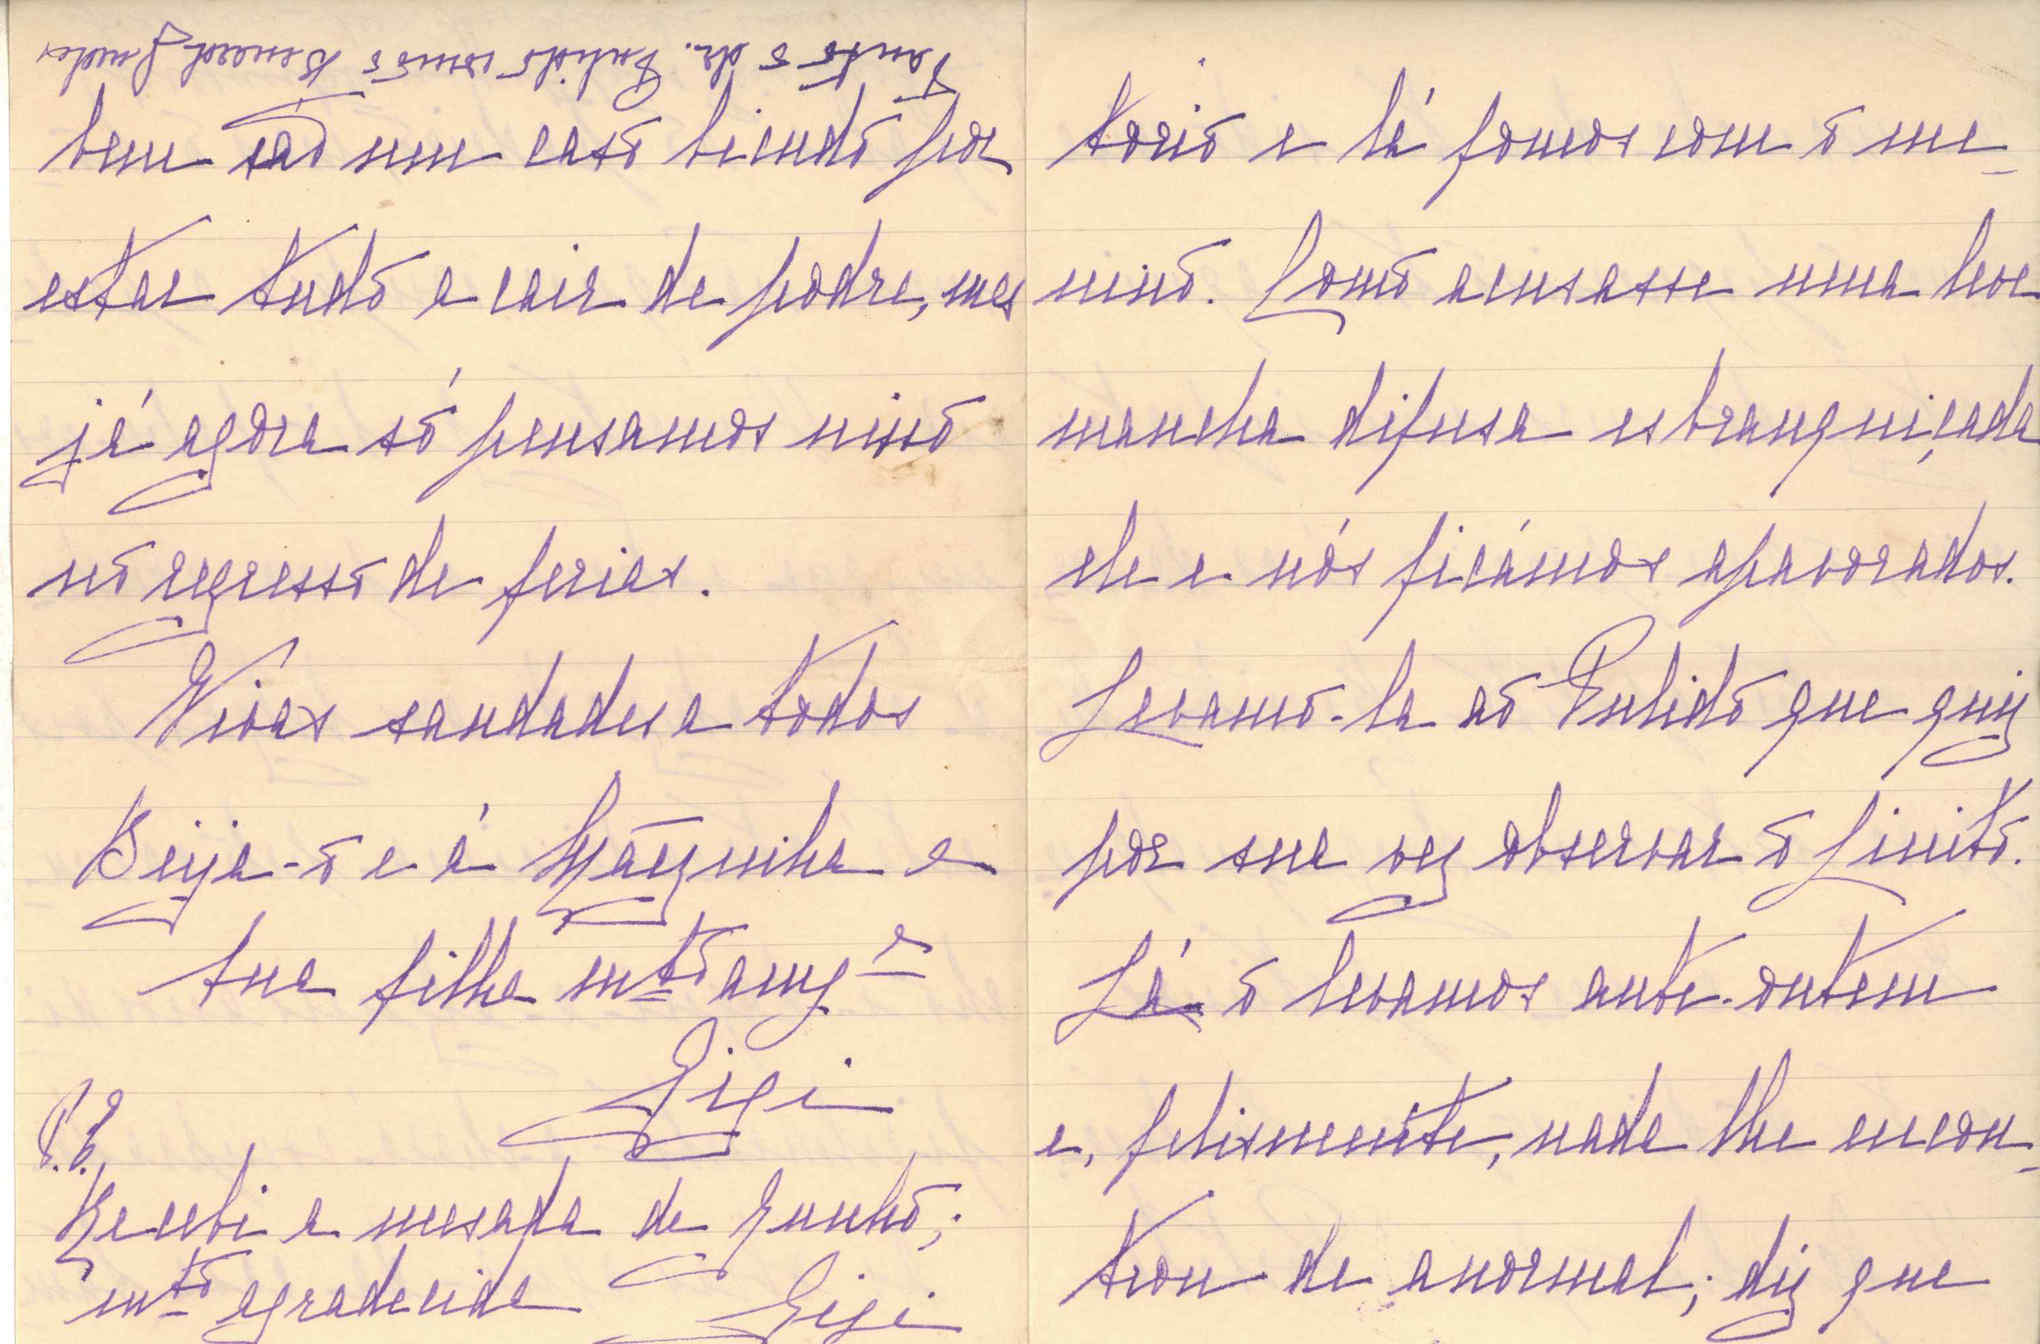 Tanto o dr. Pulido como o
bem são um caso bicudo por
estar tudo a cair de podre, mas
já agora só pensamos nisso
no regresso de ferias.
Vivas saudades a todos
Beija-o e á Mãezinha a
tua filha mto amga
Gigi
P.S.
Recebi a mesada de Junho;
mto agradecida Gigi
torio e lá fomos com o me-
nino. Como acusasse uma leve
mancha difusa esbranquiçada
ele e nós ficámos apavorados.
Levamo-la ao Pulido que quiz
por sua vez observar o Linito.
Lá o levamos ante-ontem
e, felismente, nada lhe encon-
trou de anormal; diz que